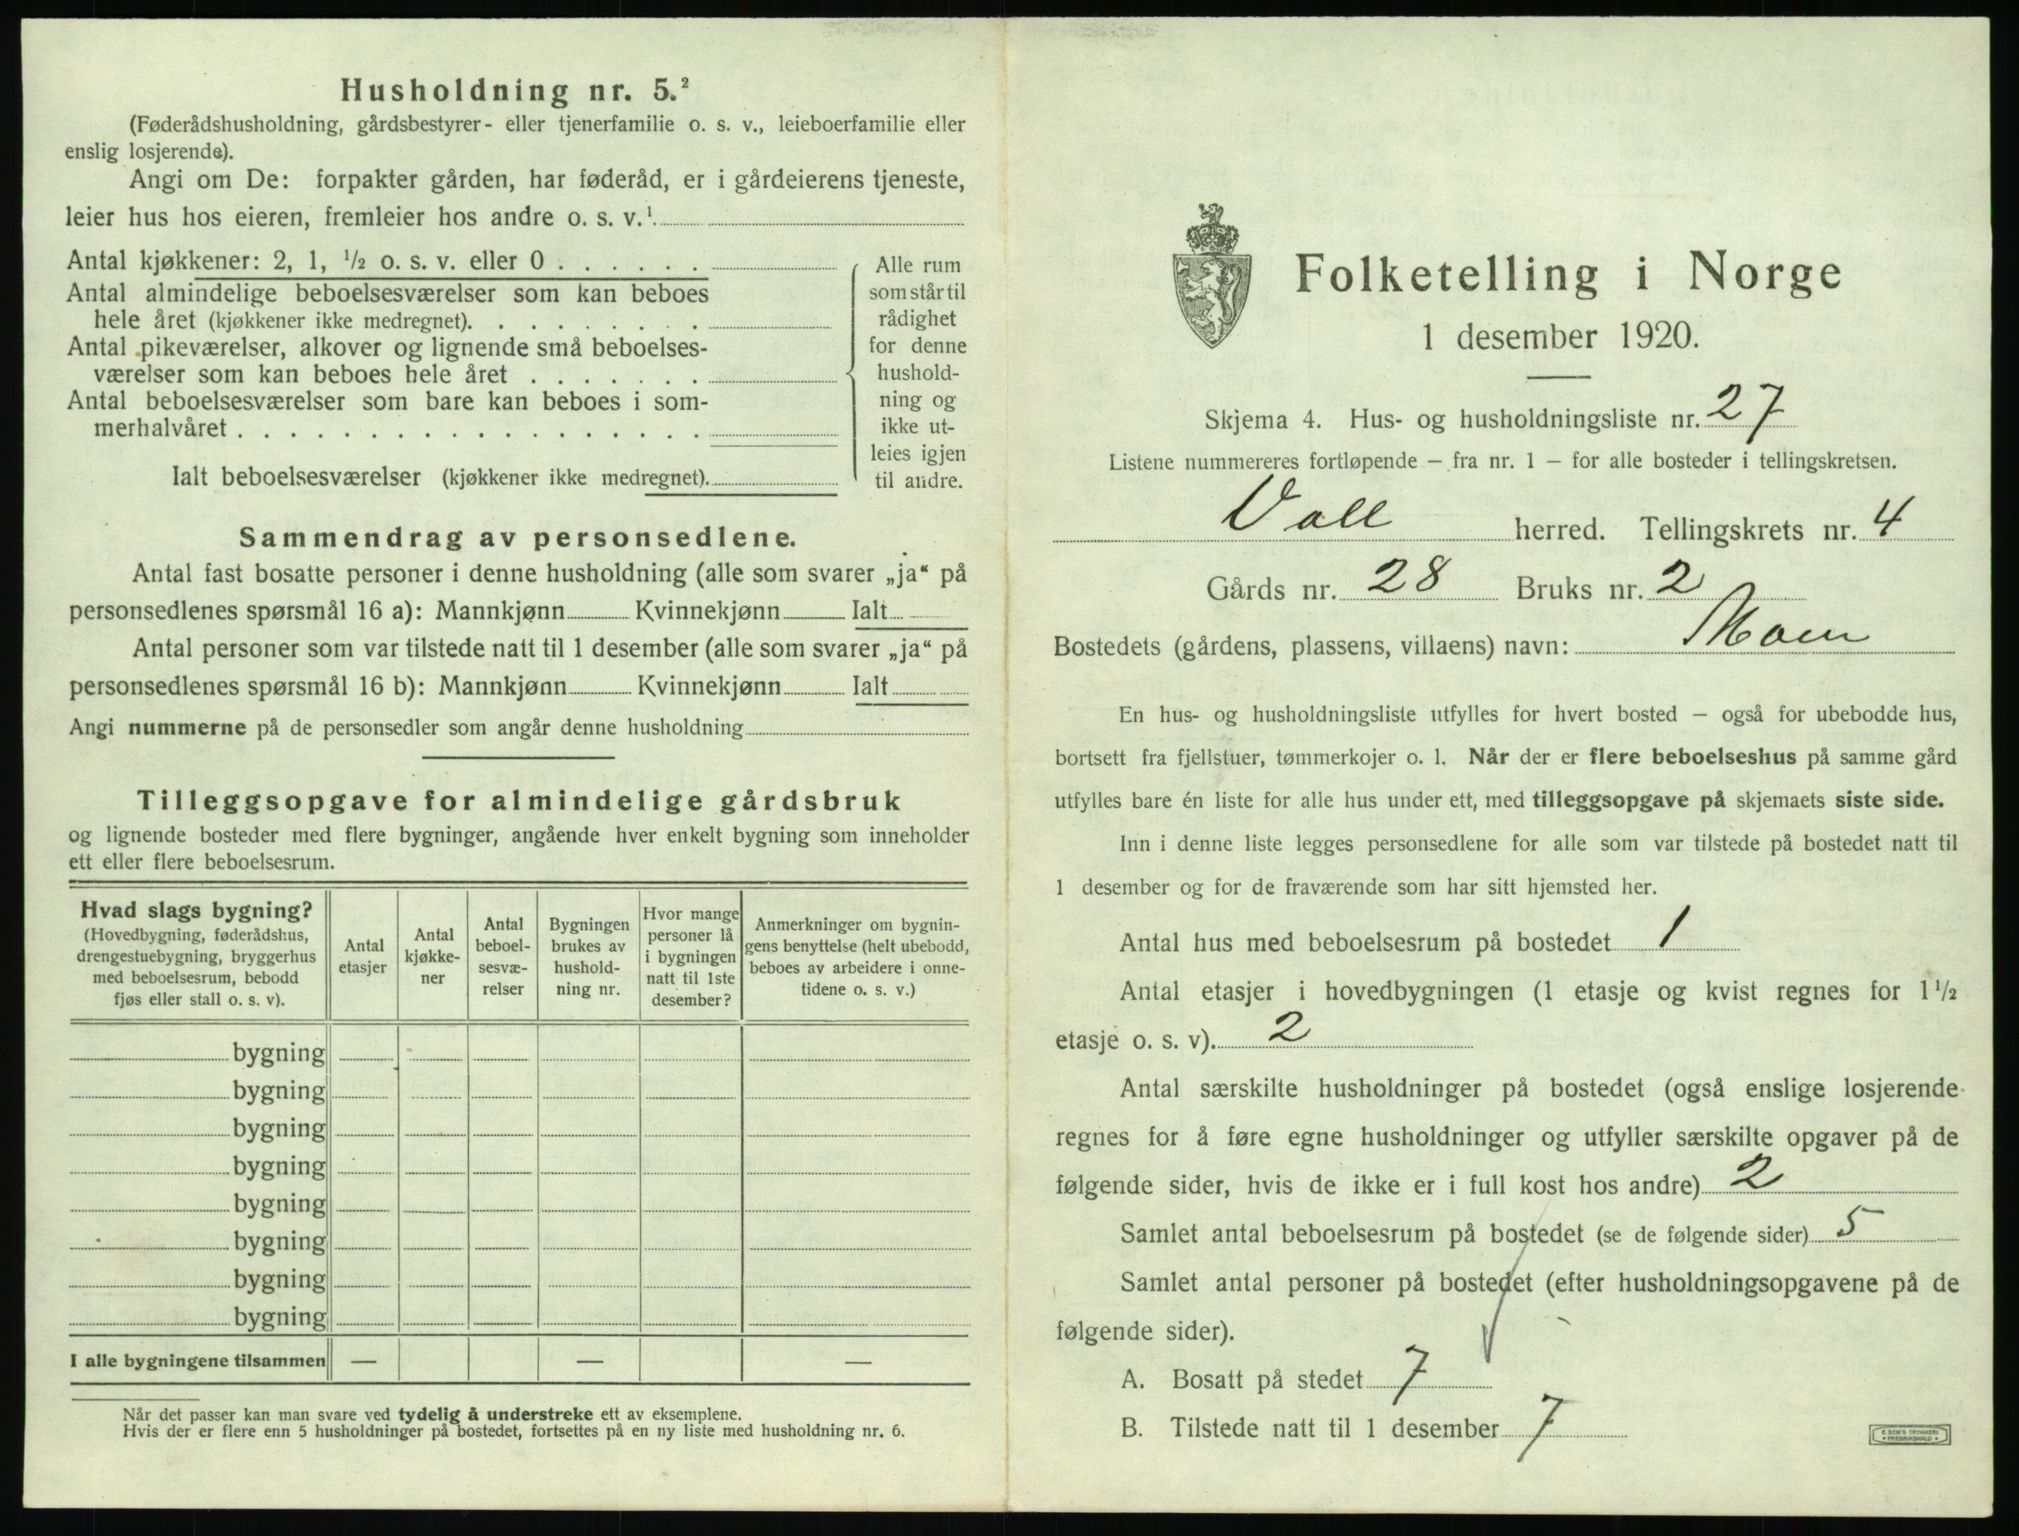 Husholdning nr. 5.²
(Føderådshusholdning, gårdsbestyrer- eller tjenerfamilie o. s. v., leieboerfamilie eller
enslig losjerende).
Angi om De: forpakter gården, har føderåd, er i gårdeierens tjeneste,
leier hus hos eieren, fremleier hos andre o. s. v.¹
Antal kjøkkener: 2, 1, ½ o. s. v. eller 0 . . . . . .
Antal almindelige beboelsesværelser som kan beboes
hele året (kjøkkener ikke medregnet). . . . . . . . .
Antal pikeværelser, alkover og lignende små beboelses-
værelser som kan beboes hele året . . . . . . .
Antal beboelsesværelser som bare kan beboes i som-
merhalvåret . . . . . . . . . . . . . . . . . .
Ialt beboelsesværelser (kjøkkener ikke medregnet).
Alle rum
som står til
rådighet
for denne
hushold-
ning og
ikke ut-
leies igjen
til andre.
Sammendrag av personsedlene.
Antal fast bosatte personer i denne husholdning (alle som svarer „ja“ på
personsedlenes spørsmål 16 a): Mannkjønn Kvinnekjønn Ialt
Antal personer som var tilstede natt til 1 desember (alle som svarer „ja“ på
personsedlenes spørsmål 16 b): Mannkjønn Kvinnekjønn Ialt
Angi nummerne på de personsedler som angår denne husholdning
Tilleggsopgave for almindelige gårdsbruk
og lignende bosteder med flere bygninger, angående hver enkelt bygning som inneholder
ett eller flere beboelsesrum.
Hvad slags bygning?
(Hovedbygning, føderådshus,
drengestuebygning, bryggerhus
med beboelsesrum, bebodd
fjøs eller stall o. s. v).
Antal
etasjer
Antal
kjøkke-
ner
Antal
beboel-
sesvæ-
relser
Bygningen
brukes av
hushold-
ning nr.
Hvor mange
personer lå
i bygningen
natt til 1ste
desember?
Anmerkninger om bygnin-
gens benyttelse (helt ubebodd,
beboes av arbeidere i onne-
tidene o. s. v.)
bygning
bygning
bygning
bygning
bygning
bygning
bygning
bygning
I alle bygningene tilsammen — — —
Når det passer kan man svare ved tydelig å understreke ett av eksemplene.
Hvis der er flere enn 5 husholdninger på bostedet, fortsettes på en ny liste med husholdning nr. 6.
Folketelling i Norge
1 desember 1920.
Skjema 4. Hus- og husholdningsliste nr. 27
Listene nummereres fortløpende — fra nr. 1 — for alle bosteder i tellingskretsen.
Voll herred. Tellingskrets nr. 4
Gårds nr. 28 Bruks nr. 2
Bostedets (gårdens, plassens, villaens) navn: Moen
En hus- og husholdningsliste utfylles for hvert bosted — også for ubebodde hus,
bortsett fra fjellstuer, tømmerkojer o. l. Når der er flere beboelseshus på samme gård
utfylles bare én liste for alle hus under ett, med tilleggsopgave på skjemaets siste side.
Inn i denne liste legges personsedlene for alle som var tilstede på bostedet natt til
1 desember og for de fraværende som har sitt hjemsted her.
Antal hus med beboelsesrum på bostedet 1
Antal etasjer i hovedbygningen (1 etasje og kvist regnes for 1½
etasje o. s. v). 2
Antal særskilte husholdninger på bostedet (også enslige losjerende
regnes for å føre egne husholdninger og utfyller særskilte opgaver på de
følgende sider, hvis de ikke er i full kost hos andre) 2
Samlet antal beboelsesrum på bostedet (se de følgende sider) 5
Samlet antal personer på bostedet (efter husholdningsopgavene på de
følgende sider).
A. Bosatt på stedet 7
B. Tilstede natt til 1 desember 7
E. SEM'S TRYKKERI
FREDRIKSHALD